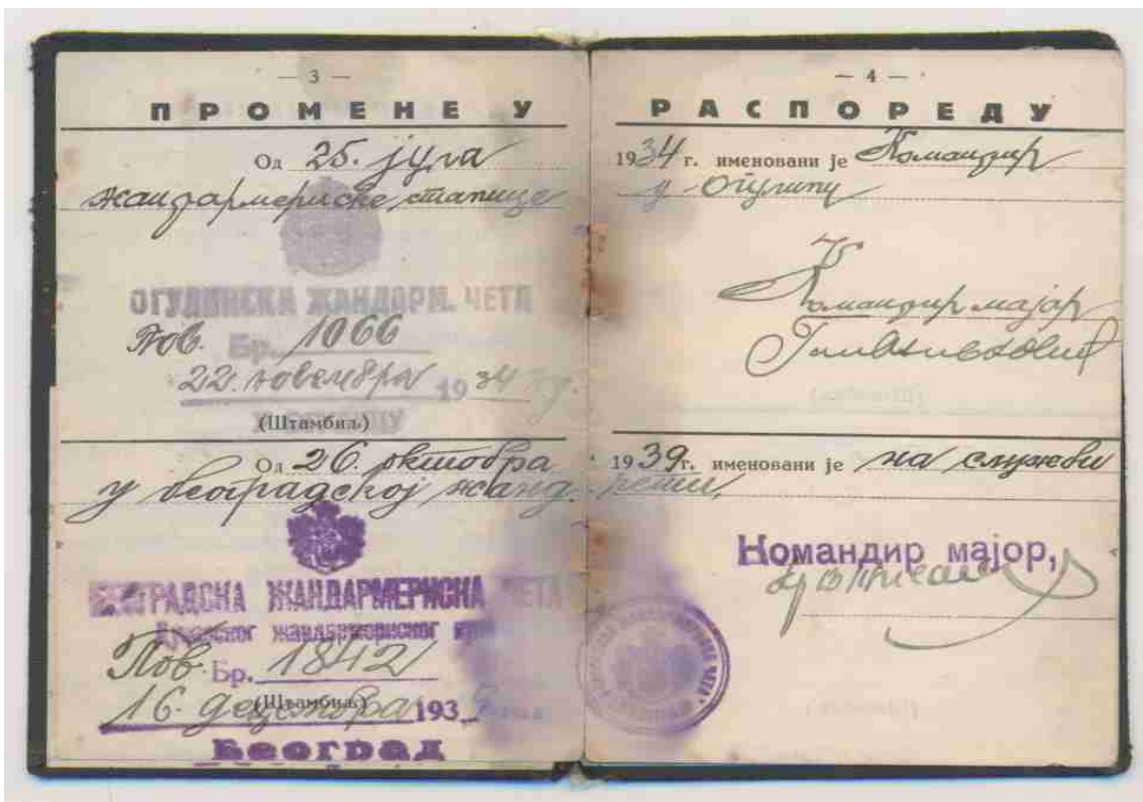 — 3 —
ПРОМЕНЕ У
Од 25. јула
жандармериске станице
ОГУЛИНСКА ЖАНДАРМ. ЧЕТА
Пов. Бр. 1066
22. новембра 1934
(Штамбиљ)
Од 26. октобра
у београдској жанд.
БЕОГРАДСКА ЖАНДАРМЕРИСКА ЧЕТА
жандармериског
Пов. Бр. 1842
(Штамбиљ)
16. децембра 193
Београд
— 4 —
РАСПОРЕДУ
1934 г. именовани је Командир
у Огулину
Командир мајор
1939 г. именовани је на служби
чети,
Командир мајор,